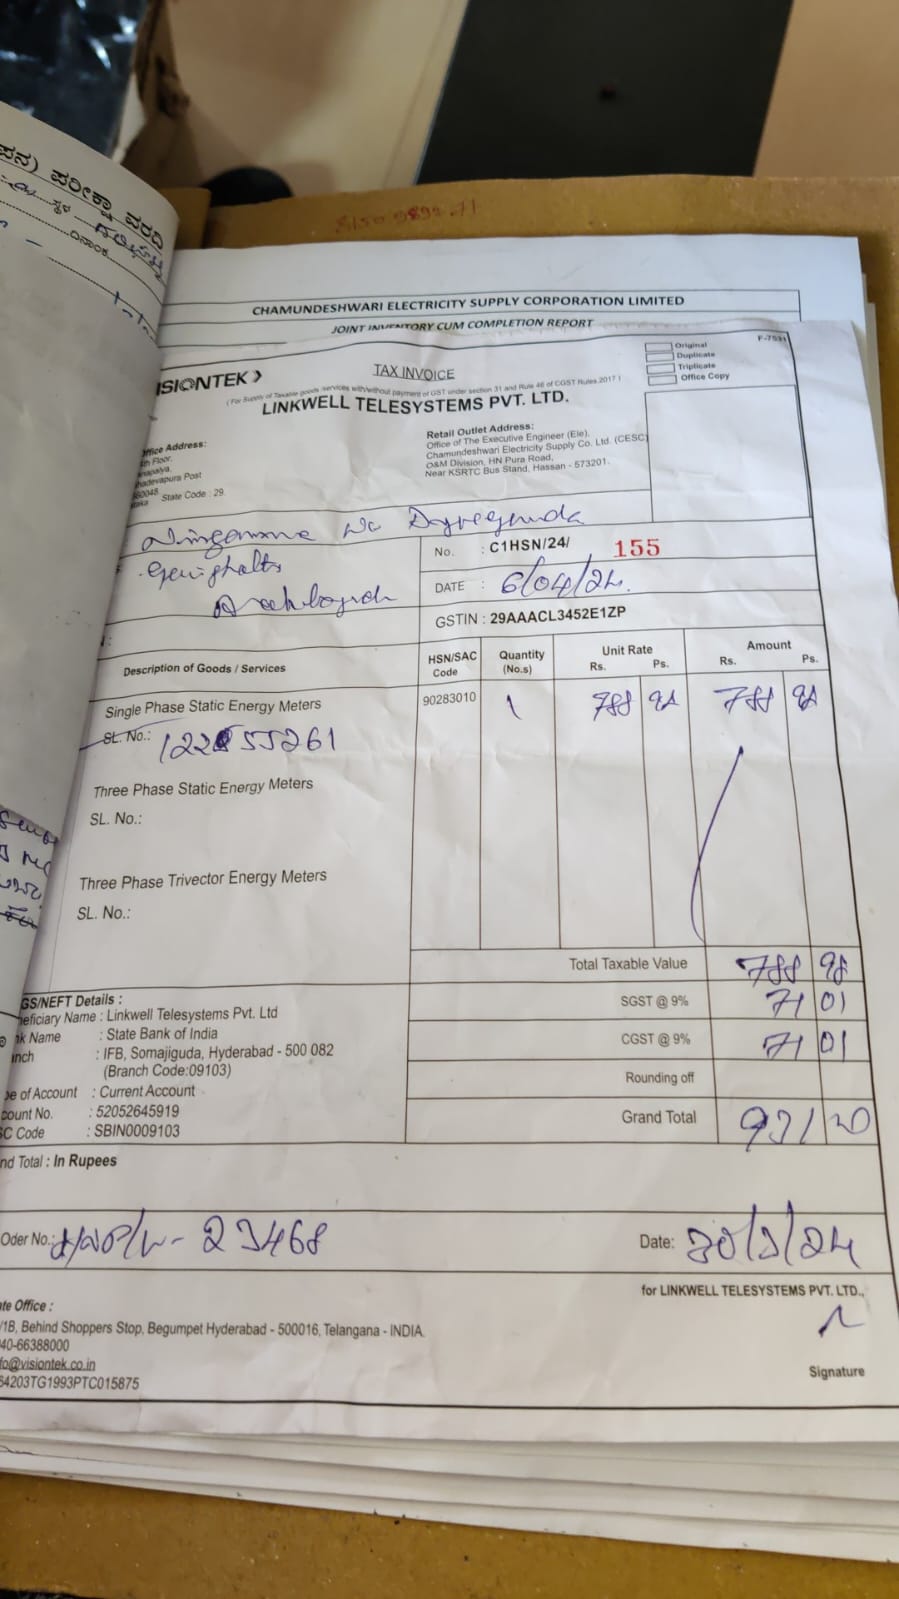 ಪರೀಕ್ಷಾ ವರದಿ
ಸ್ಥಳ
ದಿನಾಂಕ
CHAMUNDESHWARI ELECTRICITY SUPPLY CORPORATION LIMITED
JOINT INVENTORY CUM COMPLETION REPORT
F-7531
Original
Duplicate
Triplicate
Office Copy
ISIONTEK
TAX INVOICE
( For Supply of Taxable goods /services with/without payment of GST under section 31 and Rule 46 of CGST Rules,2017 )
LINKWELL TELESYSTEMS PVT. LTD.
ffice Address:
th Floor,
napalya,
hadevapura Post
560048
State Code : 29.
Retail Outlet Address:
Office of The Executive Engineer (Ele),
Chamundeshwari Electricity Supply Co. Ltd. (CESC)
O&M Division, HN Pura Road,
Near KSRTC Bus Stand, Hassan - 573201.
No. : C1HSN/24/ 155
DATE : 6/04/24
GSTIN : 29AAACL3452E1ZP
Description of Goods / Services HSN/SAC Code Quantity (No.s) Unit Rate Rs. Ps. Amount Rs. Ps.
Single Phase Static Energy Meters 90283010 1 788 98 788 98
SL. No.:
Three Phase Static Energy Meters
SL. No.:
Three Phase Trivector Energy Meters
SL. No.:
Total Taxable Value 788 98
SGST @ 9% 71 01
CGST @ 9% 71 01
Rounding off
Grand Total 931
GS/NEFT Details :
neficiary Name : Linkwell Telesystems Pvt. Ltd
nk Name : State Bank of India
nch : IFB, Somajiguda, Hyderabad - 500 082
(Branch Code:09103)
pe of Account : Current Account
count No. : 52052645919
SC Code : SBIN0009103
nd Total : In Rupees
Oder No.: 23468
Date: 30/3/24
for LINKWELL TELESYSTEMS PVT. LTD.,
Signature
ate Office :
/1B, Behind Shoppers Stop, Begumpet Hyderabad - 500016, Telangana - INDIA.
40-66388000
fo@visiontek.co.in
64203TG1993PTC015875